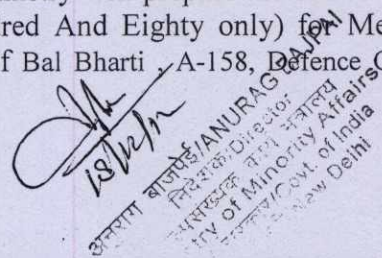 red And Eighty only) for Me
f Bal Bharti , A-158, Defence C
18/12/12
अनुराग बाजपेई/ANURAG BAJPAI
निदेशक/Director
अल्पसंख्यक कार्य मंत्रालय
try of Minority Affairs
/Govt. of India
New Delhi